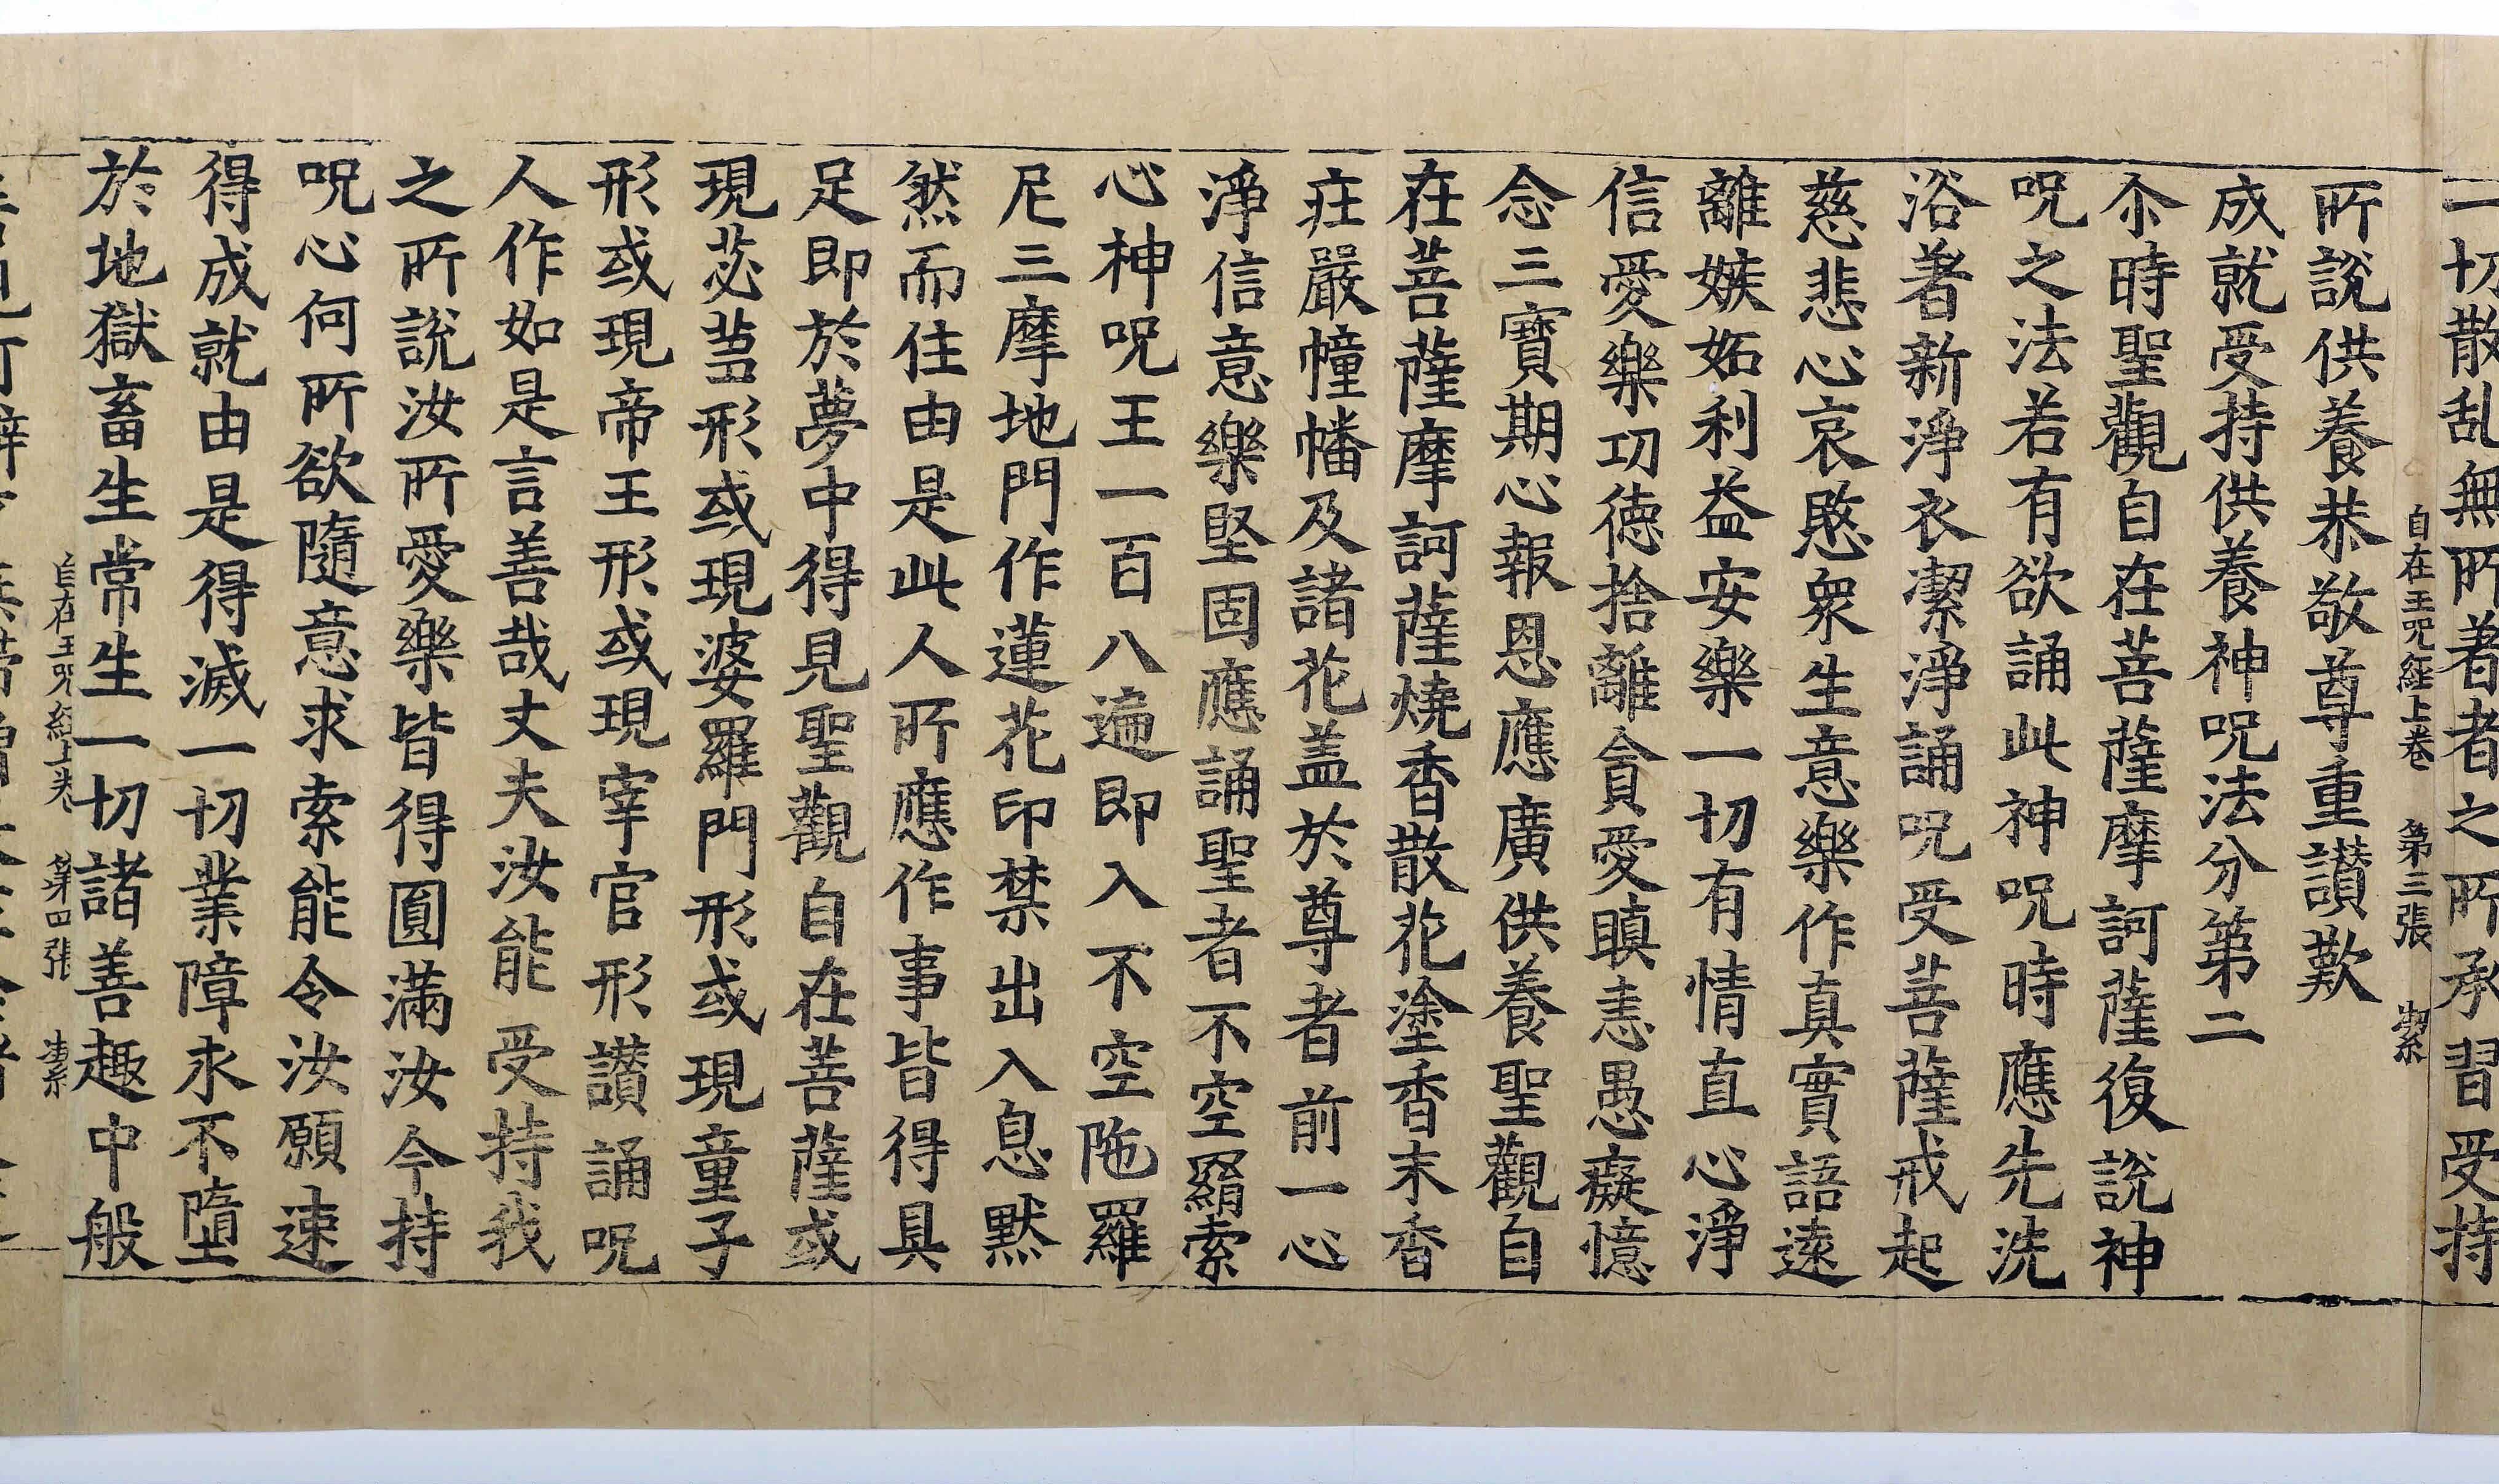 一切散乱無所著者之所承習受持
自在王呪經上卷 第三張 潔
所說供養恭敬尊重讃歎
成就受持供養神呪法分第二
尒時聖觀自在菩薩摩訶薩復說神
呪之法若有欲誦此神呪時應先洗
浴著新淨衣潔淨誦呪受菩薩戒起
慈悲心哀愍衆生意樂作真實語遠
離嫉妬利益安樂一切有情直心淨
信愛樂功德捨離貪愛瞋恚愚癡憶
念三寶期心報恩應廣供養聖觀自
在菩薩摩訶薩燒香散花塗香末香
莊嚴幢幡及諸花盖於尊者前一心
淨信意樂堅固應誦聖者不空羂索
心神呪王一百八遍即入不空陁羅
尼三摩地門作蓮花印禁出入息黙
然而住由是此人所應作事皆得具
足即於夢中得見聖觀自在菩薩或
現苾蒭形或現婆羅門形或現童子
形或現帝王形或現宰官形讃誦呪
人作如是言善哉丈夫汝能受持我
之所說汝所愛樂皆得圓滿汝今持
呪心何所欲隨意求索能令汝願速
得成就由是得滅一切業障永不墮
於地獄畜生常生一切諸善趣中般
自在王呪經上卷 第四張 潔